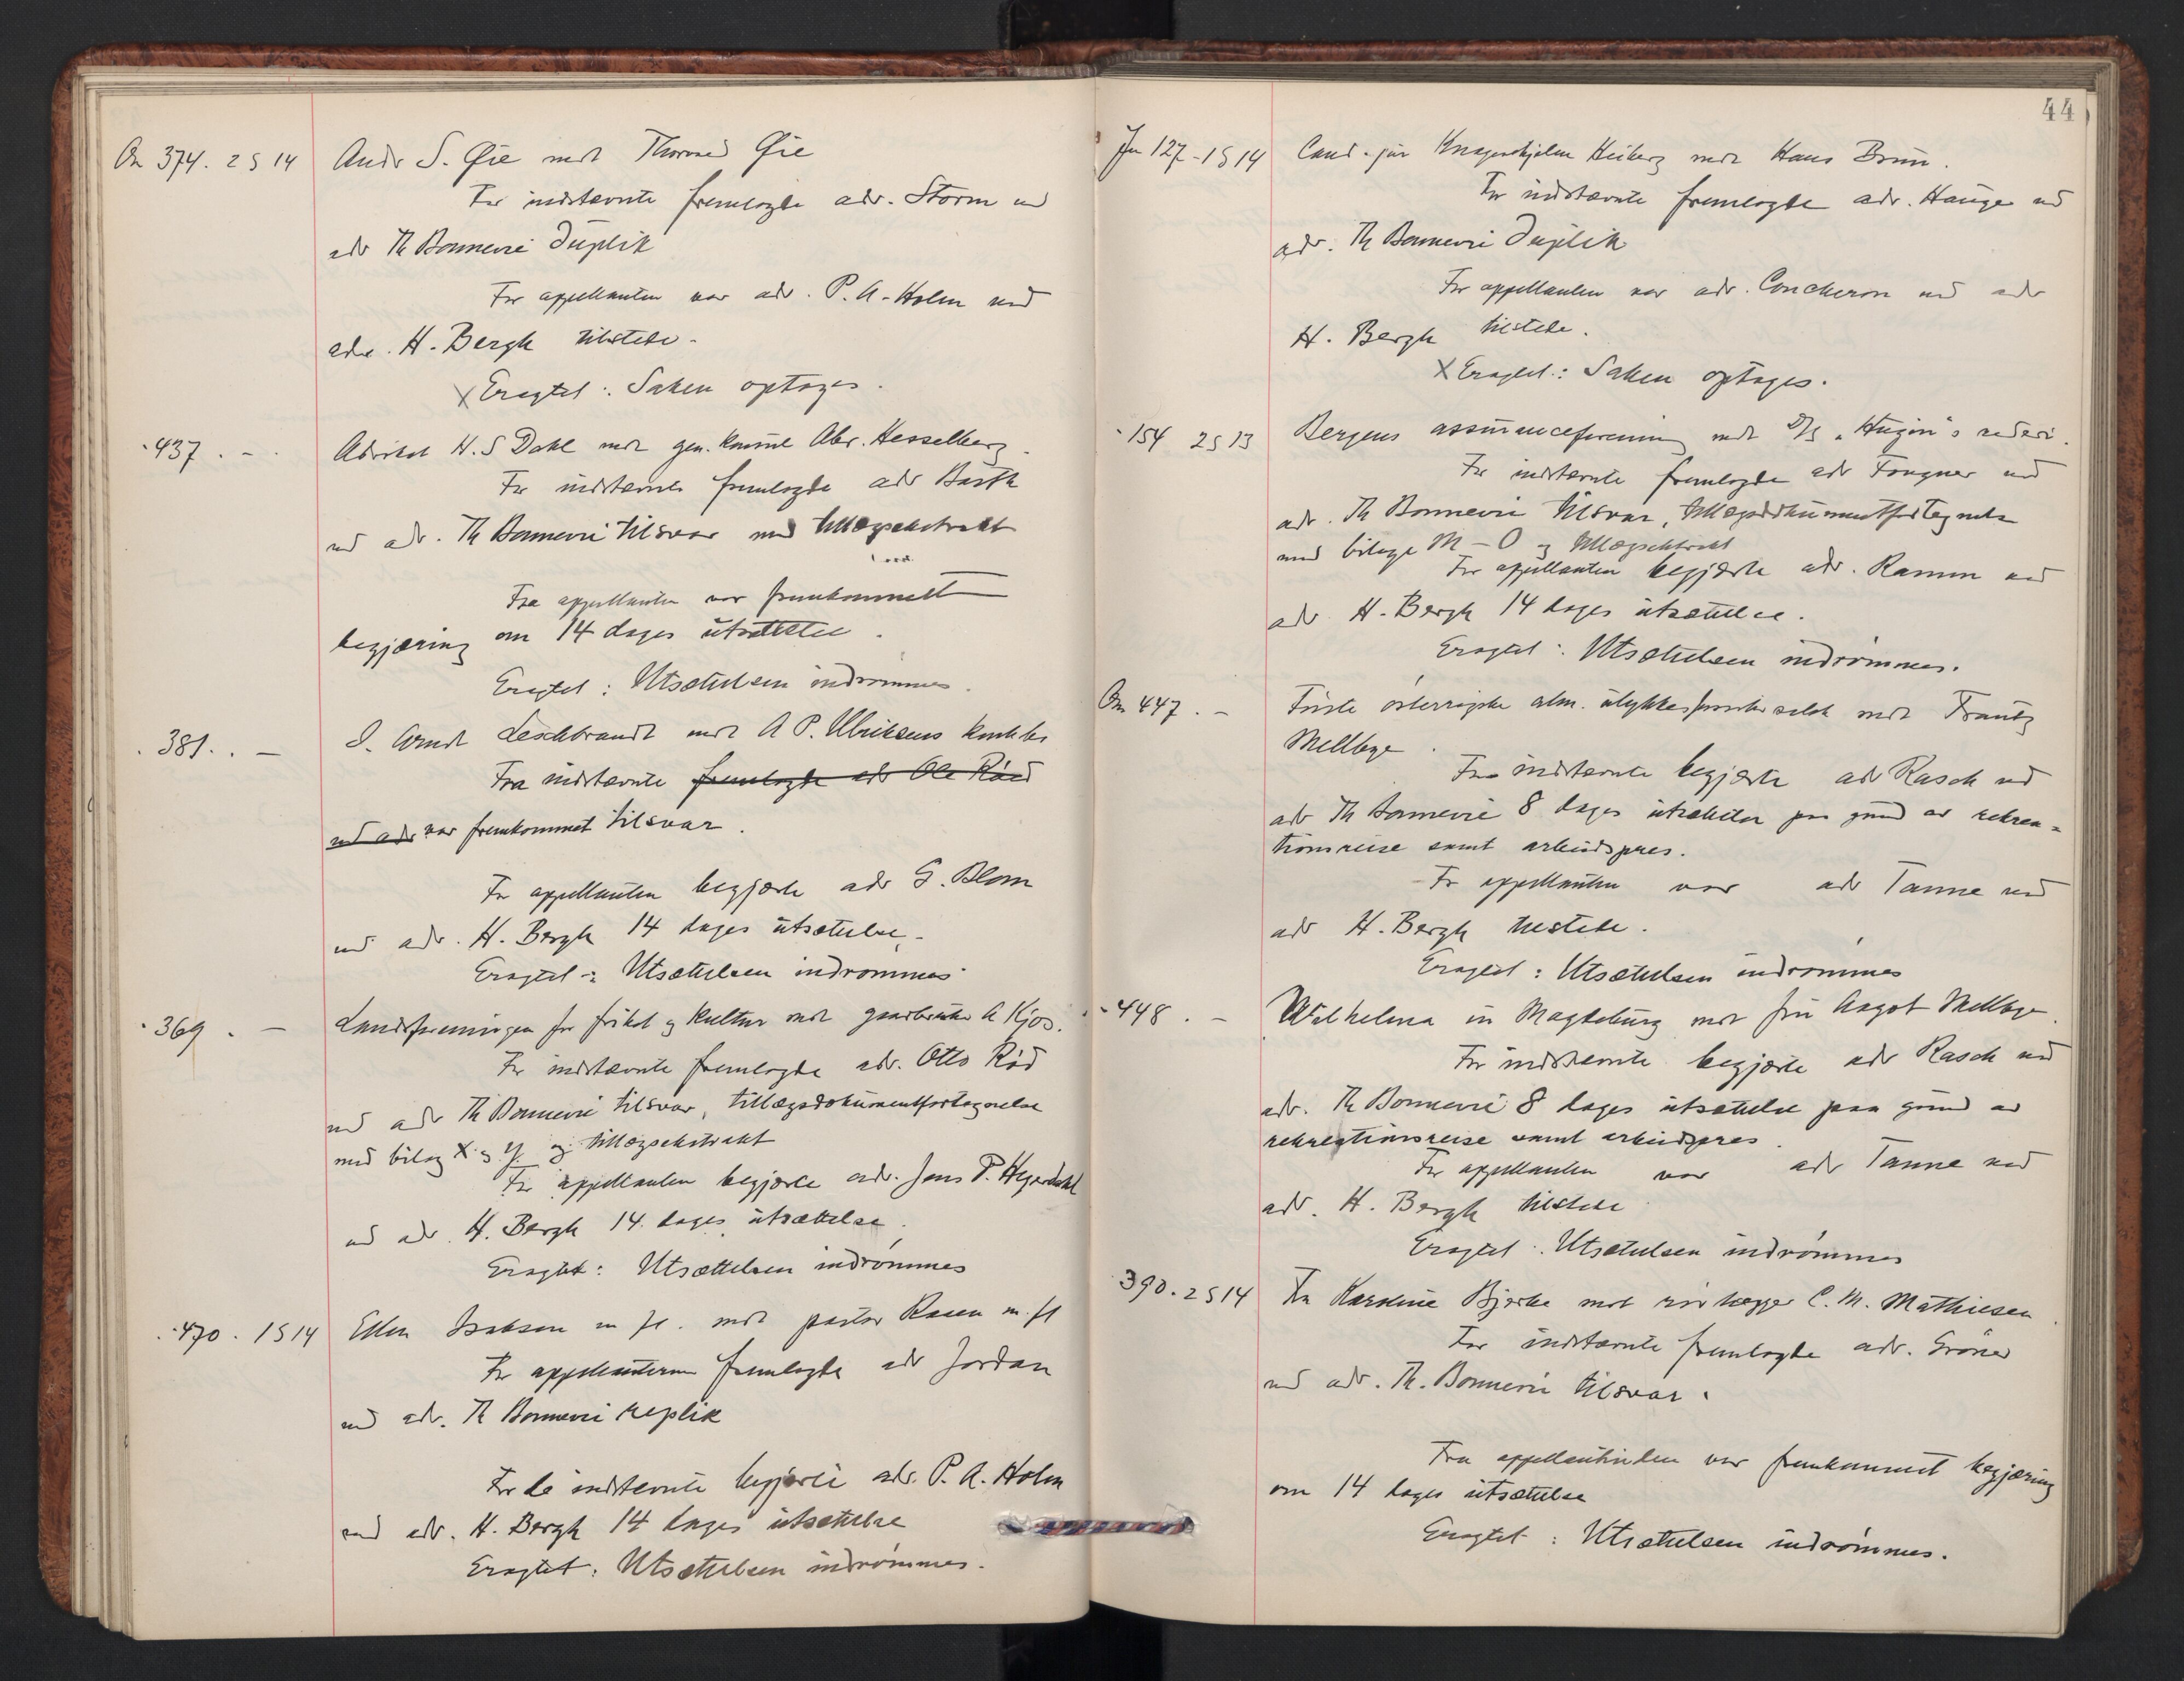 On 374. 2 S 14 Andr S. Øie mot Thorvald Øie
For indstævnte fremlagde adv. Storm ved
adv Th Bonnevie Duplik
For appellanten var adv. P. A. Holm ved
adv. H. Bergh tilstede.
X Eragtet: Saken optages.
- 437. - Advokat H. S Dahl mot gen. konsul Abr. Hesselberg.
For indstævnte fremlagde adv Barth
ved adv. Th Bonnevie tilsvar med tillægsekstrakt
Fra appellanten var fremkommet
begjæring om 14 dages utsættelse.
Eragtet: Utsættelsen indrømmes.
- 381. - Leschbrandt mot A P. Ulriksens
Fra indstævnte fremlagde adv Ole Röed
ved adv var fremkommet tilsvar.
For appellanten begjærte adv G. Blom
ved adv. H. Bergh 14 dages utsættelse.
Eragtet: Utsættelsen indrømmes.
- 369. - Landsforeningen for frikost og kultur mot gaardbruker A Kjos.
For indstævnte fremlagde adv. Otto Röd
ved adv Th Bonnevie tilsvar, tillægsdokumentfortegnelse
med bilag X og Y. og tillægsekstrakt
For appellanten begjærte adv. Jens P. Heyerdahl
ved adv. H. Bergh 14. dages utsættelse.
Eragtet: Utsættelsen indrømmes
- 470. 1 S 14 Ellen Isaksen m fl. mot pastor m. fl
For appellanterne fremlagde adv Jordan
ved adv. Th Bonnevie replik
For de indstævnte begjærte adv. P. A. Holm
ved adv. H. Bergh 14 dages utsættelse
Eragtet: Utsættelsen indrømmes.
44
Jn 127 - 1 S 14 Cand. jur Knagenhjelm Heiberg mot Hans Brun.
For indstævnte fremlagde adv. Hauge ved
adv. Th Bonnevie Duplik
For appellanten var adv. Concheron ved adv
H. Bergh tilstede.
X Eragtet: Saken optages.
- 154 2 S 13 Bergens assuranceforening mot D/S "Hugin"s rederi.
For indstævnte fremlagde adv Fougner ved
adv. Th Bonnevie tilsvar, tillægsdokumentfortegnelse
med bilage M - O og tillægsekstrakt
For appellanten begjærte adv. Ramm ved
adv H. Bergh 14 dages utsættelse.
Eragtet: Utsættelsen indrømmes.
On 447. - Første østerrigske alm. ulykkesforsikr selsk mot Frantz
Mellbye.
For indstævnte begjærte adv Rasch ved
adv Th Bonnevie 8 dages utsættelse paa grund av rekrea-
tionsreise samt arbeidspres.
For appellanten var adv Tanne ved
adv H. Bergh tilstede.
Eragtet: Utsættelsen indrømmes
- 448. - Wilhelma in Magdeburg mot fru Aagot Mellbye.
For indstævnte begjærte adv Rasch ved
adv. Th Bonnevie 8 dages utsættelse paa grund av
rekreationsreise samt arbeidspres.
For appellanten var adv Tanne ved
adv. H. Bergh tilstede.
Eragtet: Utsættelsen indrømmes
390. 2 S 14 Fru Karoline Bjerke mot C. M. Mathiesen.
For indstævnte fremlagde adv. Gröner
ved adv. Th. Bonnevie tilsvar.
Fra appellantinden var fremkommet begjæring
om 14 dages utsættelse
Eragtet: Utsættelsen indrømmes.